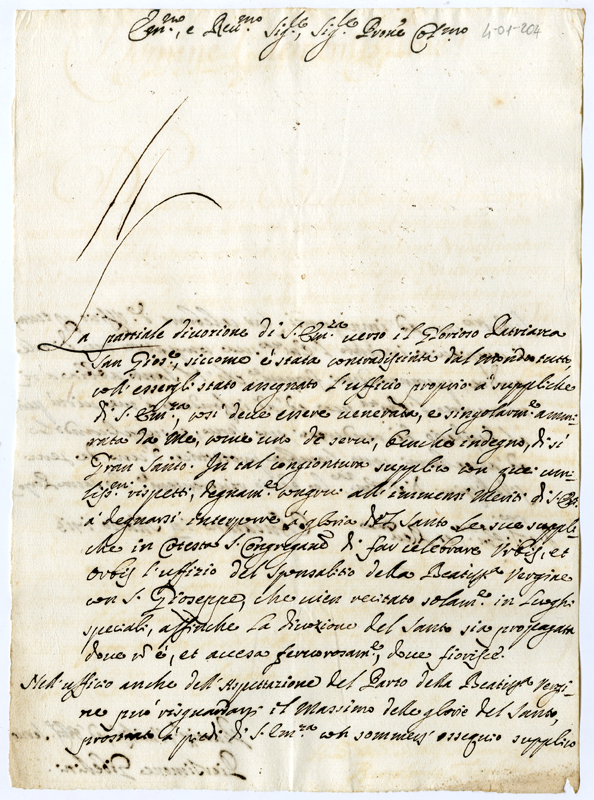 Em.mo, e Reu.mo Sig.re, Sig.re Prone Col.mo
4-01-204
La partiale divotione di S. Em.za verso il Glorioso Patriarca
San Gios.e, siccome è stata contradistinta dal mondo tutto
coll'essergli stato assegnato l'ufficio proprio a suppliche
di S. Em.za, così deve essere venerata, e singolarm.e ammi-
rata da me, come uno de servi, benche indegno, di sì
Gran Santo. In tal congiontura supplico con que umi-
liss.mi rispetti, degnam.e congrui all'immensi meriti di S. Em.
à degnarsi interporre à gloria del Santo le sue suppli-
che in cotesta S. Congregaz. di far celebrare Urbis, et
Orbis l'uffizio del Sponsalitio della Beatiss.a Vergine
con S. Gioseppe, che vien recitato solam.e in Luoghi
speciali, affinche la divozione del Santo sia propagata
dove nō è, et accesa fervorosam.e, dove fiorisce.
Nell'ufficio anche dell'Aspettazione del Parto della Beatiss.a Vergi-
ne può risguardarsi il Massimo delle glorie del Santo,
prostrato à piedi di S. Em.za con sommess. ossequio supplico